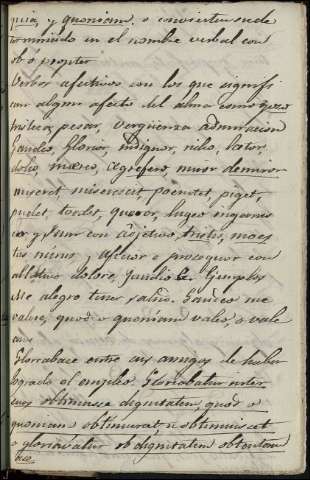 quia, y quoniam. o convierten su de
terminado en el nombre verbal con
ob ó propter
Verbos afectivos con los que signifi
can algun afecto del alma como gozo
tristeza pesar, verguenza admiracion
Gaudeo, Glorior, indignor, rideo, lætor,
doleo, mœreo, ægrefero, miror demiror
miseret miserescit pœnitet, piget,
pudet, tædet, queror, lugeo
y sum con adjetivo tristis, mœs
tus y afficior o prosequor con
ablativo dolore, gaudio &. Ejemplos
Me alegro tener salud. Gaudeo me
valere, quod o quoniam valeo, o vale
am
Gloriabase entre sus amigos de haber
logrado el empleo. Gloriabatur inter
suos obtinuisse dignitatem quod o
quoniam obtinuerat, u obtinuisset
o gloriabatur ob dignitatem obtentam